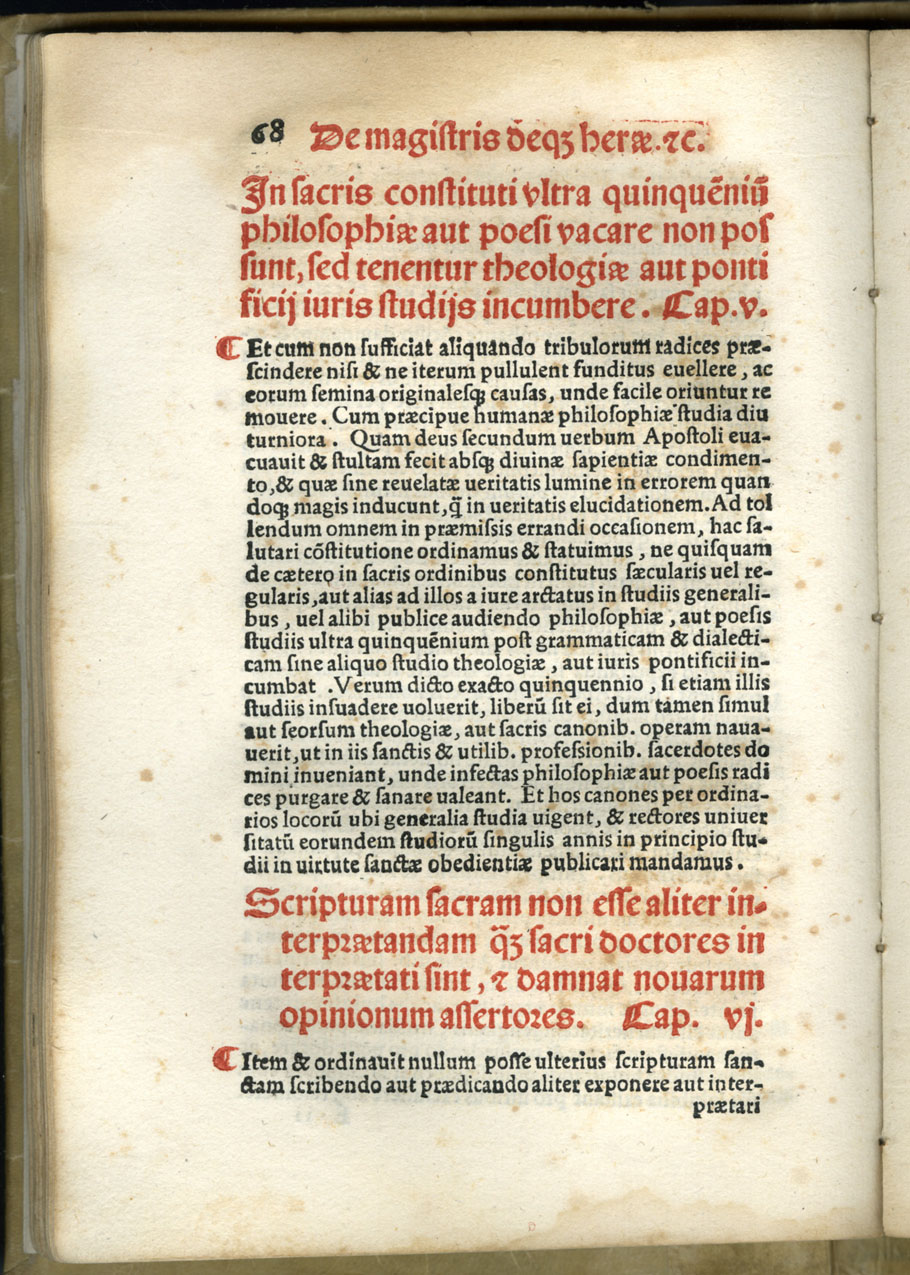 68 De magistris deqꝫ heræ.⁊c.
In sacris constituti vltra quinquẽniũ
philosophiæ aut poesi vacare non pos
sunt, sed tenentur theologiæ aut ponti
ficij iuris studijs incumbere. Cap.v.
¶ Et cum non sufficiat aliquando tribulorum radices præ-
scindere nisi & ne iterum pullulent funditus euellere, ac
eorum semina originalesqꝫ causas, unde facile oriuntur re
mouere. Cum præcipue humanæ philosophiæ studia diu
turniora. Quam deus secundum uerbum Apostoli eua-
cuauit & stultam fecit absqꝫ diuinæ sapientiæ condimen-
to, & quæ sine reuelatæ ueritatis lumine in errorem quan
doqꝫ magis inducunt, q̃ in ueritatis elucidationem. Ad tol
lendum omnem in præmissis errandi occasionem, hac sa-
lutari cõstitutione ordinamus & statuimus, ne quisquam
de cætero in sacris ordinibus constitutus sæcularis uel re-
gularis, aut alias ad illos a iure arctatus in studiis generali-
bus, uel alibi publice audiendo philosophiæ, aut poesis
studiis ultra quinquẽnium post grammaticam & dialecti-
cam sine aliquo studio theologiæ, aut iuris pontificii in-
cumbat .Verum dicto exacto quinquennio, si etiam illis
studiis insuadere uoluerit, liberũ sit ei, dum tamen simul
aut seorsum theologiæ, aut sacris canonib. operam naua-
uerit, ut in iis sanctis & utilib. professionib. sacerdotes do
mini inueniant, unde infectas philosophiæ aut poesis radi
ces purgare & sanare ualeant. Et hos canones per ordina-
rios locorũ ubi generalia studia uigent, & rectores uniuer
sitatũ eorundem studiorũ singulis annis in principio stu-
dii in uirtute sanctæ obedientiæ publicari mandamus.
Scripturam sacram non esse aliter in-
terprætandam q̃ꝫ sacri doctores in
terprætati sint, ⁊ damnat nouarum
opinionum assertores. Cap. vj.
¶ Item & ordinauit nullum posse ulterius scripturam san-
ctam scribendo aut prædicando aliter exponere aut inter-
prætari